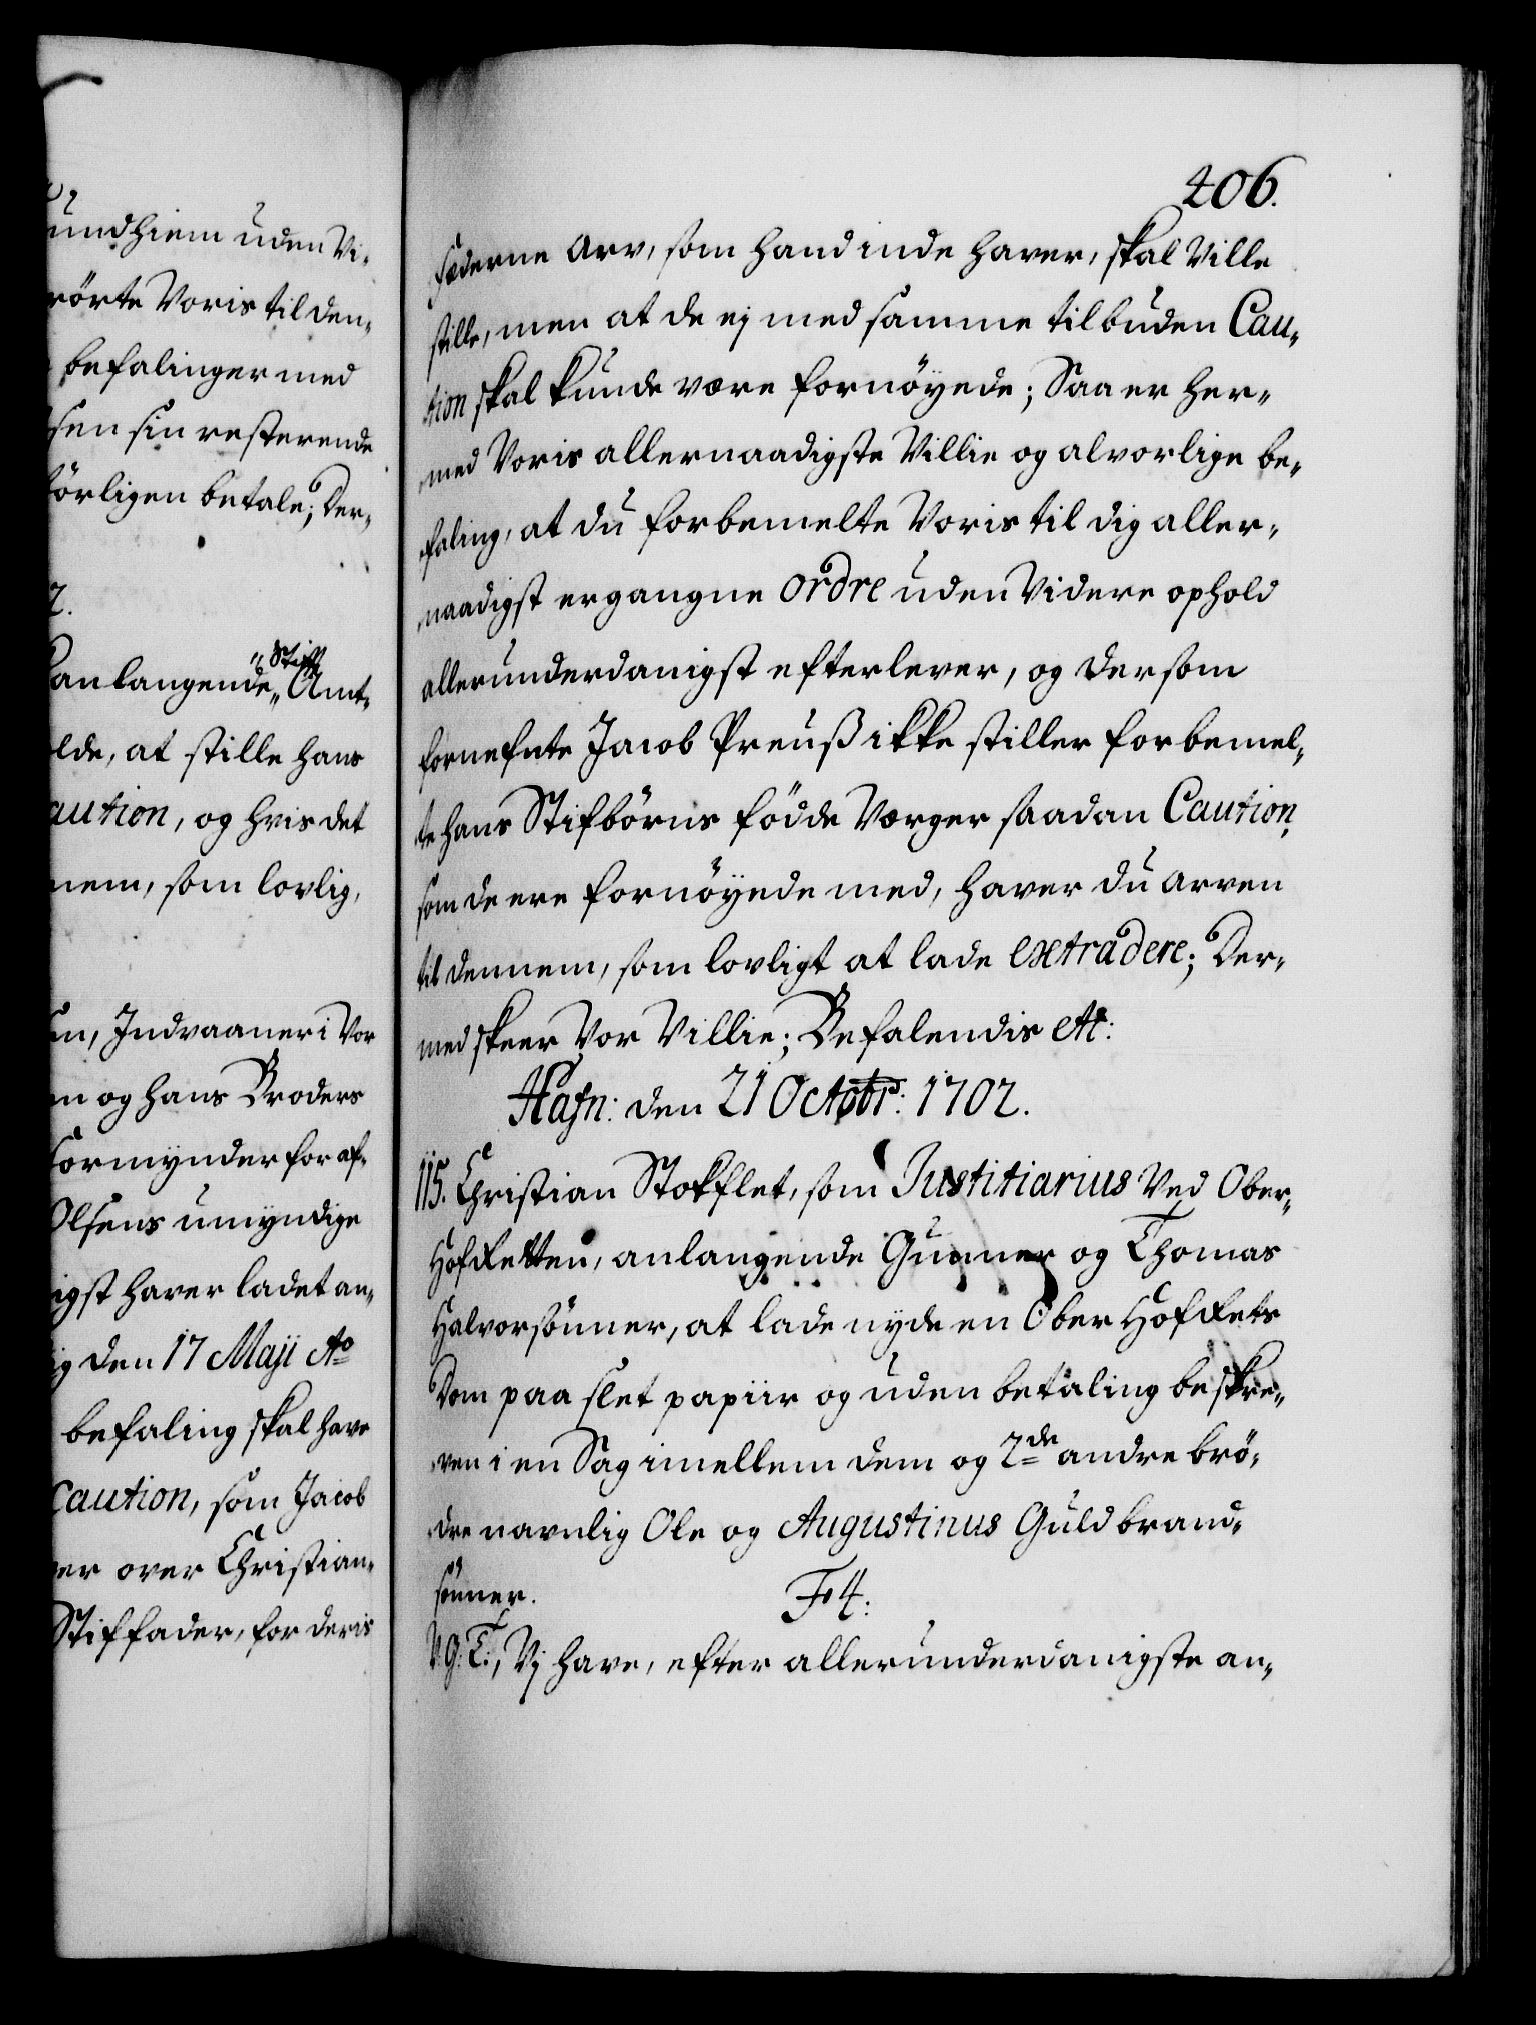 undhiem uden Vi-
rörte Voris til den-
befalinger med
sen sin resterende
örligen betale; Der-
2.
anlangende Stift Amt-
lde, at stille hans
aution, og hvis det
nem, som lovlig,
en, Indvaaner i Vor
n og hans Broders
ormynder for af-
Olsens umyndige
igst haver ladet an-
ig den 17 Maji Ao
befaling skal have
Caution, som Jacob
er over Christian-
Stiffader, for deris
406.
fæderne Arv, som hand inde haver, skal Ville
stille, men at de ej med samme tilbuden Cau-
tion skal kunde være fornöyede; Saa er her-
med Voris allernaadigste Villie og alvorlige be-
faling, at du forbemelte Voris til dig aller-
naadigst ergangne ordre uden Videre ophold
allerunderdanigst efterlever, og dersom
fornefnte Jacob Preuß ikke stiller forbemel-
te hans Stifbörns födde Værger saadan Caution,
som de ere fornöyede med, haver du Arven
til dennem, som lovligt at lade extradere; Der-
med skeer Vor Villie; Befalendis etc:
Hafn: den 21 Octobr: 1702.
115. Christian Stokflet, som Justitiarius Ved Ober-
HofRetten, anlangende Gunner og Thomas
Halvorsönner, at lade nyde en Ober HofRets
Dom paa slet papiir og uden betaling beskre-
ven i en Sag imellem dem og 2de andre brö-
dre navnlig Ole og Augustinus Guldbrand-
sönner.
F 4:
V: G: T:, Vj have, efter allerunderdanigste an-